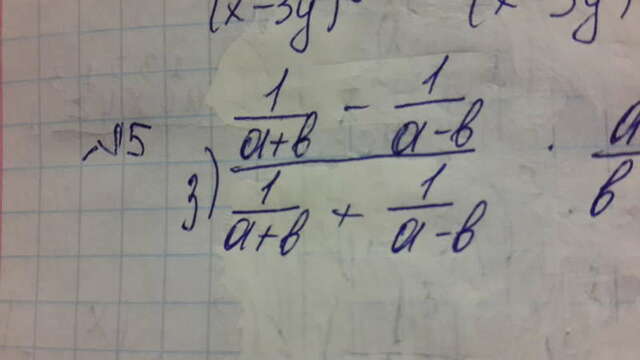 (x-3y) (x-3y)
№5
3) (1/(a+b) - 1/(a-b)) / (1/(a+b) + 1/(a-b)) · a/b